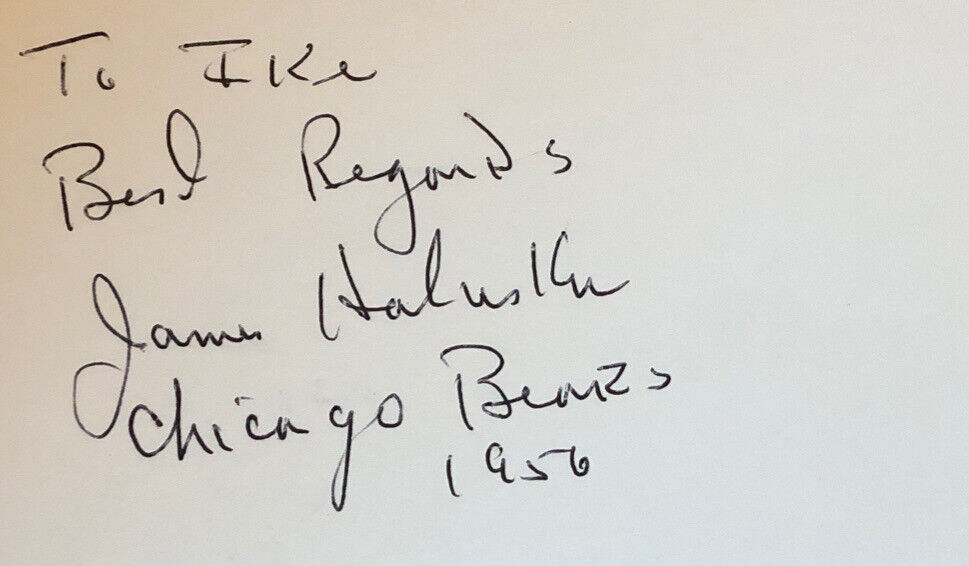 To Ike
Best Regards
James Haluska
Chicago Bears
1956